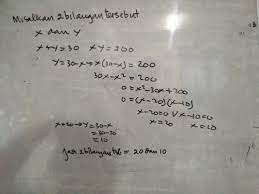 Misalkan 2 bilangan tersebut
x dan y
x+y=30 xy=200
y=30-x → x(30-x) = 200
30x-x² = 200
0=x²-30x+200
0=(x-20)(x-10)
x-20=0 V x-10=0
x=20 x=10
x=20→y=30-x
=30-20
=10
Jadi 2 bilangan tsb = 20 dan 10